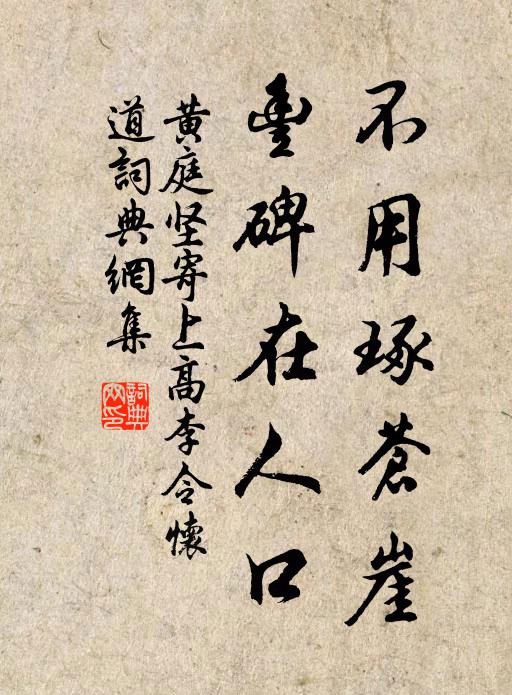 不用琢苍崖
豊碑在人口
黄庭坚寄上高李令懷
道詞典網集
詞典网印